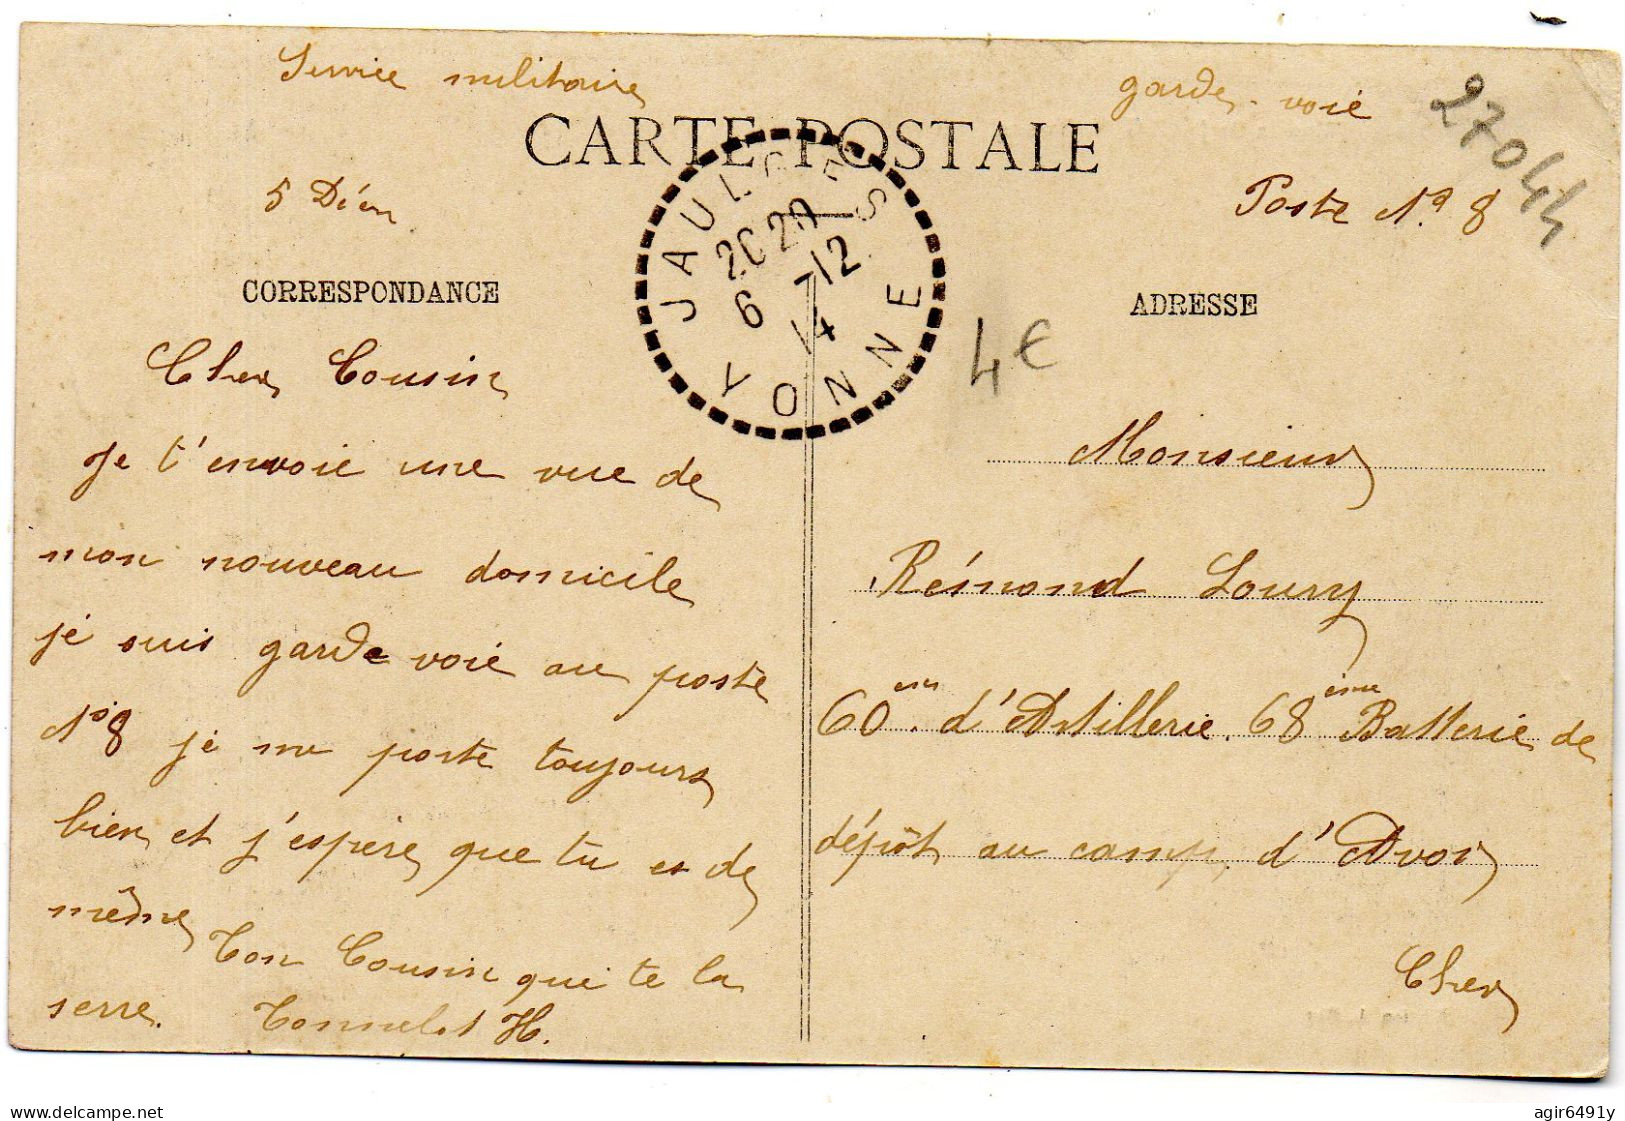 Service militaire
garde-voie
27044
CARTE POSTALE
5 Déc
Poste N° 8
JAULGES
20 20
6 -12
14
YONNE
CORRESPONDANCE
ADRESSE
4€
Cher Cousin
je t'envoie une vue de
mon nouveau domicile
je suis garde voie au poste
N° 8 je me porte toujours
bien et j'espère que tu es de
même
Ton Cousin qui te la
serre.
H.
Monsieur
Rémond Loury
60ème d'Artillerie. 68ème Batterie de
dépôt au camp d'Avor
Cher
delcampe.net
agir6491y